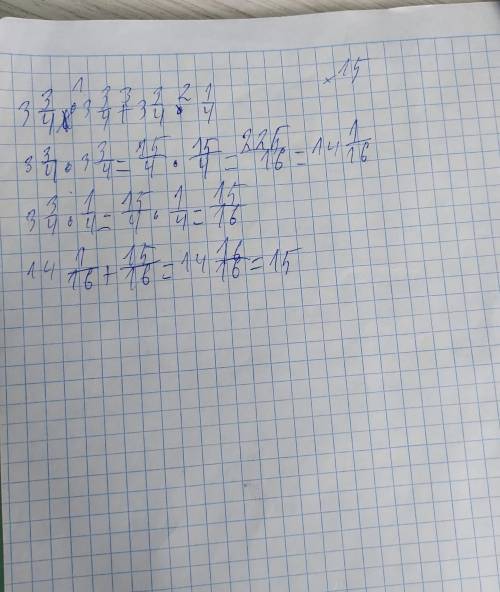 15
3 3/4 · 3 3/4 + 3 3/4 · 1/4
3 3/4 · 3 3/4 = 15/4 · 15/4 = 225/16 = 14 1/16
3 3/4 · 1/4 = 15/4 · 1/4 = 15/16
14 1/16 + 15/16 = 14 16/16 = 15